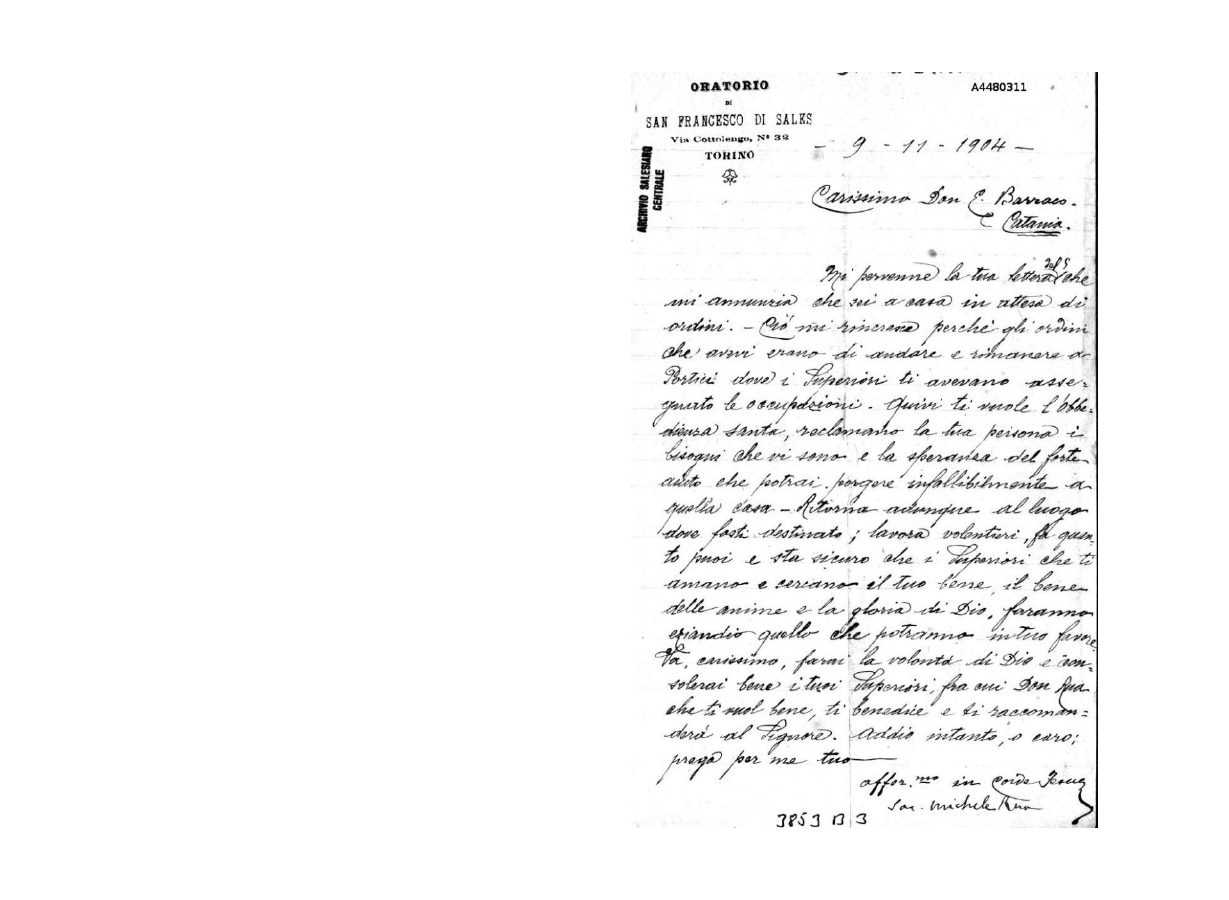 ORATORIO
DI
SAN FRANCESCO DI SALES
Via Cottolengo, N° 32
TORINO
A4480311
ARCHIVIO SALESIANO
CENTRALE
- 9 - 11 - 1904 -
Carissimo Don E. Barraco.
Catania.
Mi pervenne la tua lettera del 5 che
mi annunzia che sei a casa in attesa di
ordini. - Ciò mi rincresce perchè gli ordini
che avevi erano di andare e rimanere a
Portici dove i Superiori ti avevano asse-
gnato le occupazioni. Quivi ti vuole l'Obbe-
dienza santa, reclamano la tua persona i
bisogni che vi sono e la speranza del forte
aiuto che potrai porgere infallibilmente a
quella casa - Ritorna adunque al luogo
dove fosti destinato; lavora volentieri, fa quan-
to puoi e sta sicuro che i Superiori che ti
amano e cercano il tuo bene, il bene
delle anime e la gloria di Dio, faranno
eziandio quello che potranno in tuo favore.
Va, carissimo, farai la volontà di Dio e con-
solerai bene i tuoi Superiori, fra cui Don Rua
che ti vuol bene, ti benedice e ti raccoman=
derà al Signore. Addio intanto, o caro;
prega per me tuo
affez.mo in Corde Jesu
Sac. Michele Rua
3853 B 3